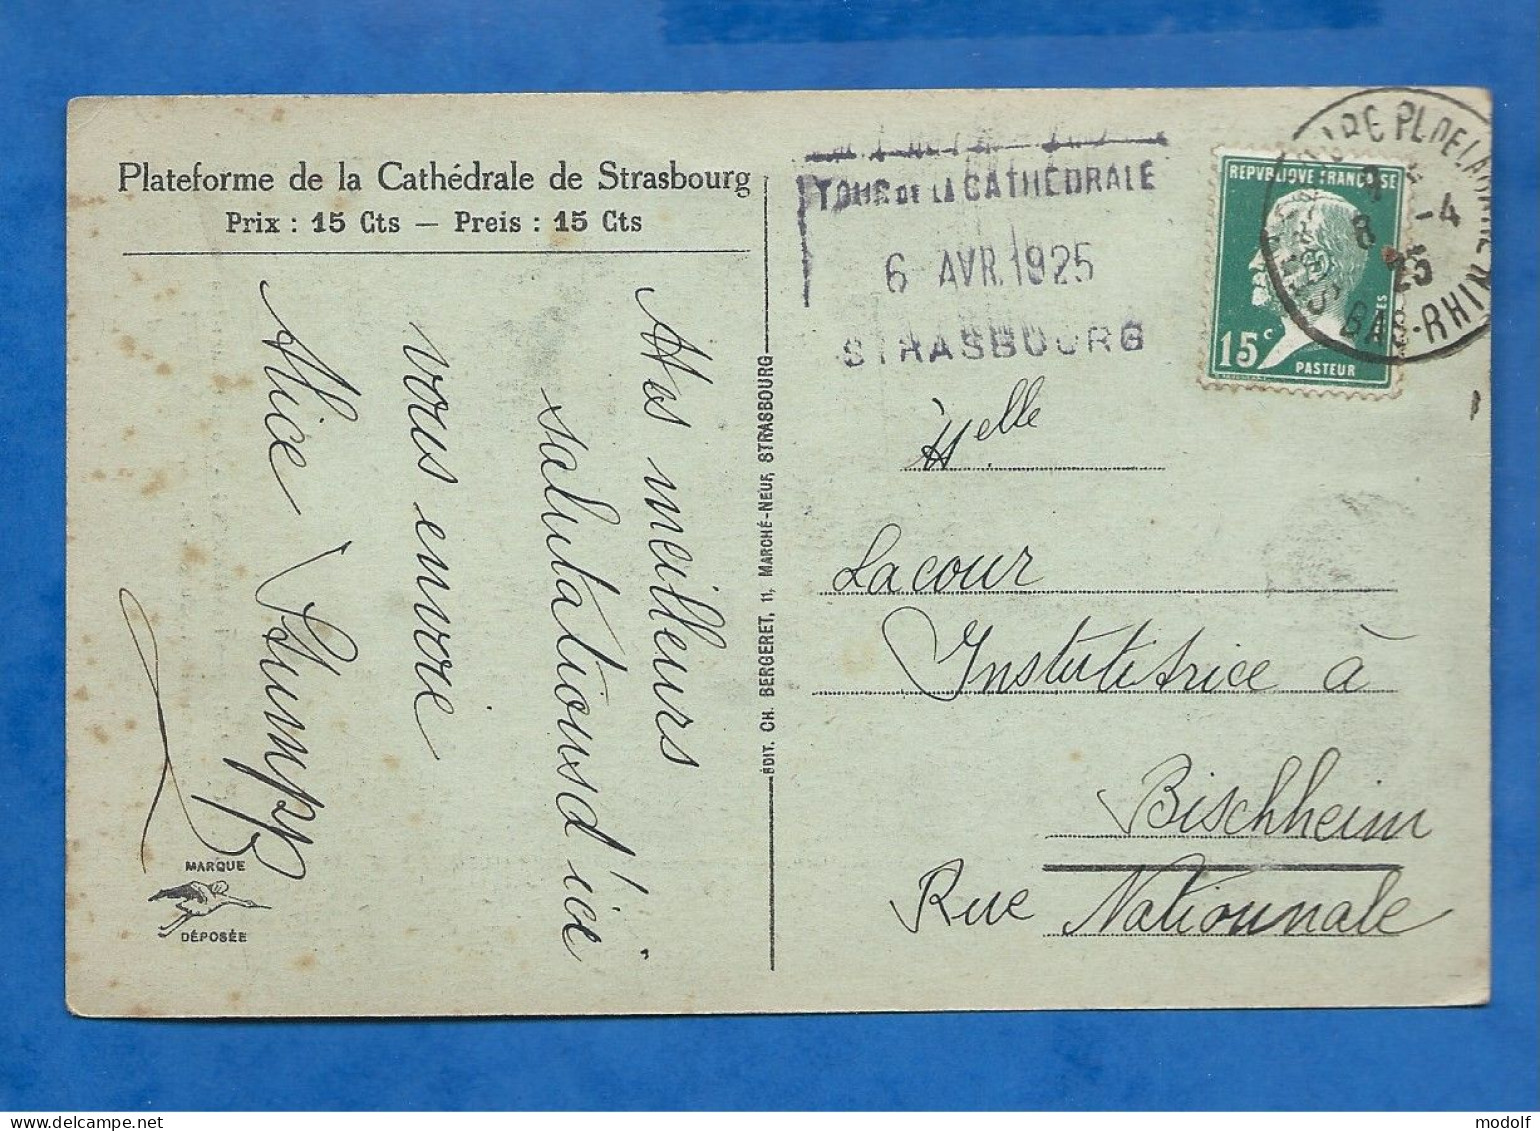 Plateforme de la Cathédrale de Strasbourg
Prix : 15 Cts — Preis : 15 Cts
Mes meilleurs
salutations d'ici
vous envoie
Alice Stumpp
MARQUE
DÉPOSÉE
ÉDIT. CH. BERGERET, 11, MARCHÉ-NEUF, STRASBOURG
TOUR DE LA CATHÉDRALE
6 AVR. 1925
STRASBOURG
REPUBLIQUE FRANÇAISE
15c
PASTEUR
POSTES
PL. DE LA
8 -4
25
BAS-RHIN
Melle
Lacour
Institutrice à
Bischheim
Rue Nationnale
modolf